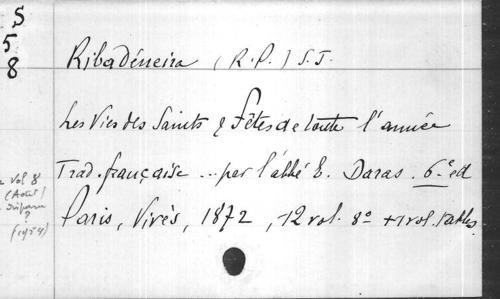 S
5
8
Ribadéneira (R.P.) S.J.
Les Vies des Saints & Fêtes de toute l'année
Trad. française ... par l'abbé E. Daras. 6e éd
Paris, Vivès, 1872, 12 vol. 8° + 1 vol. tables.
vol 8
(Août)
?
(1954)